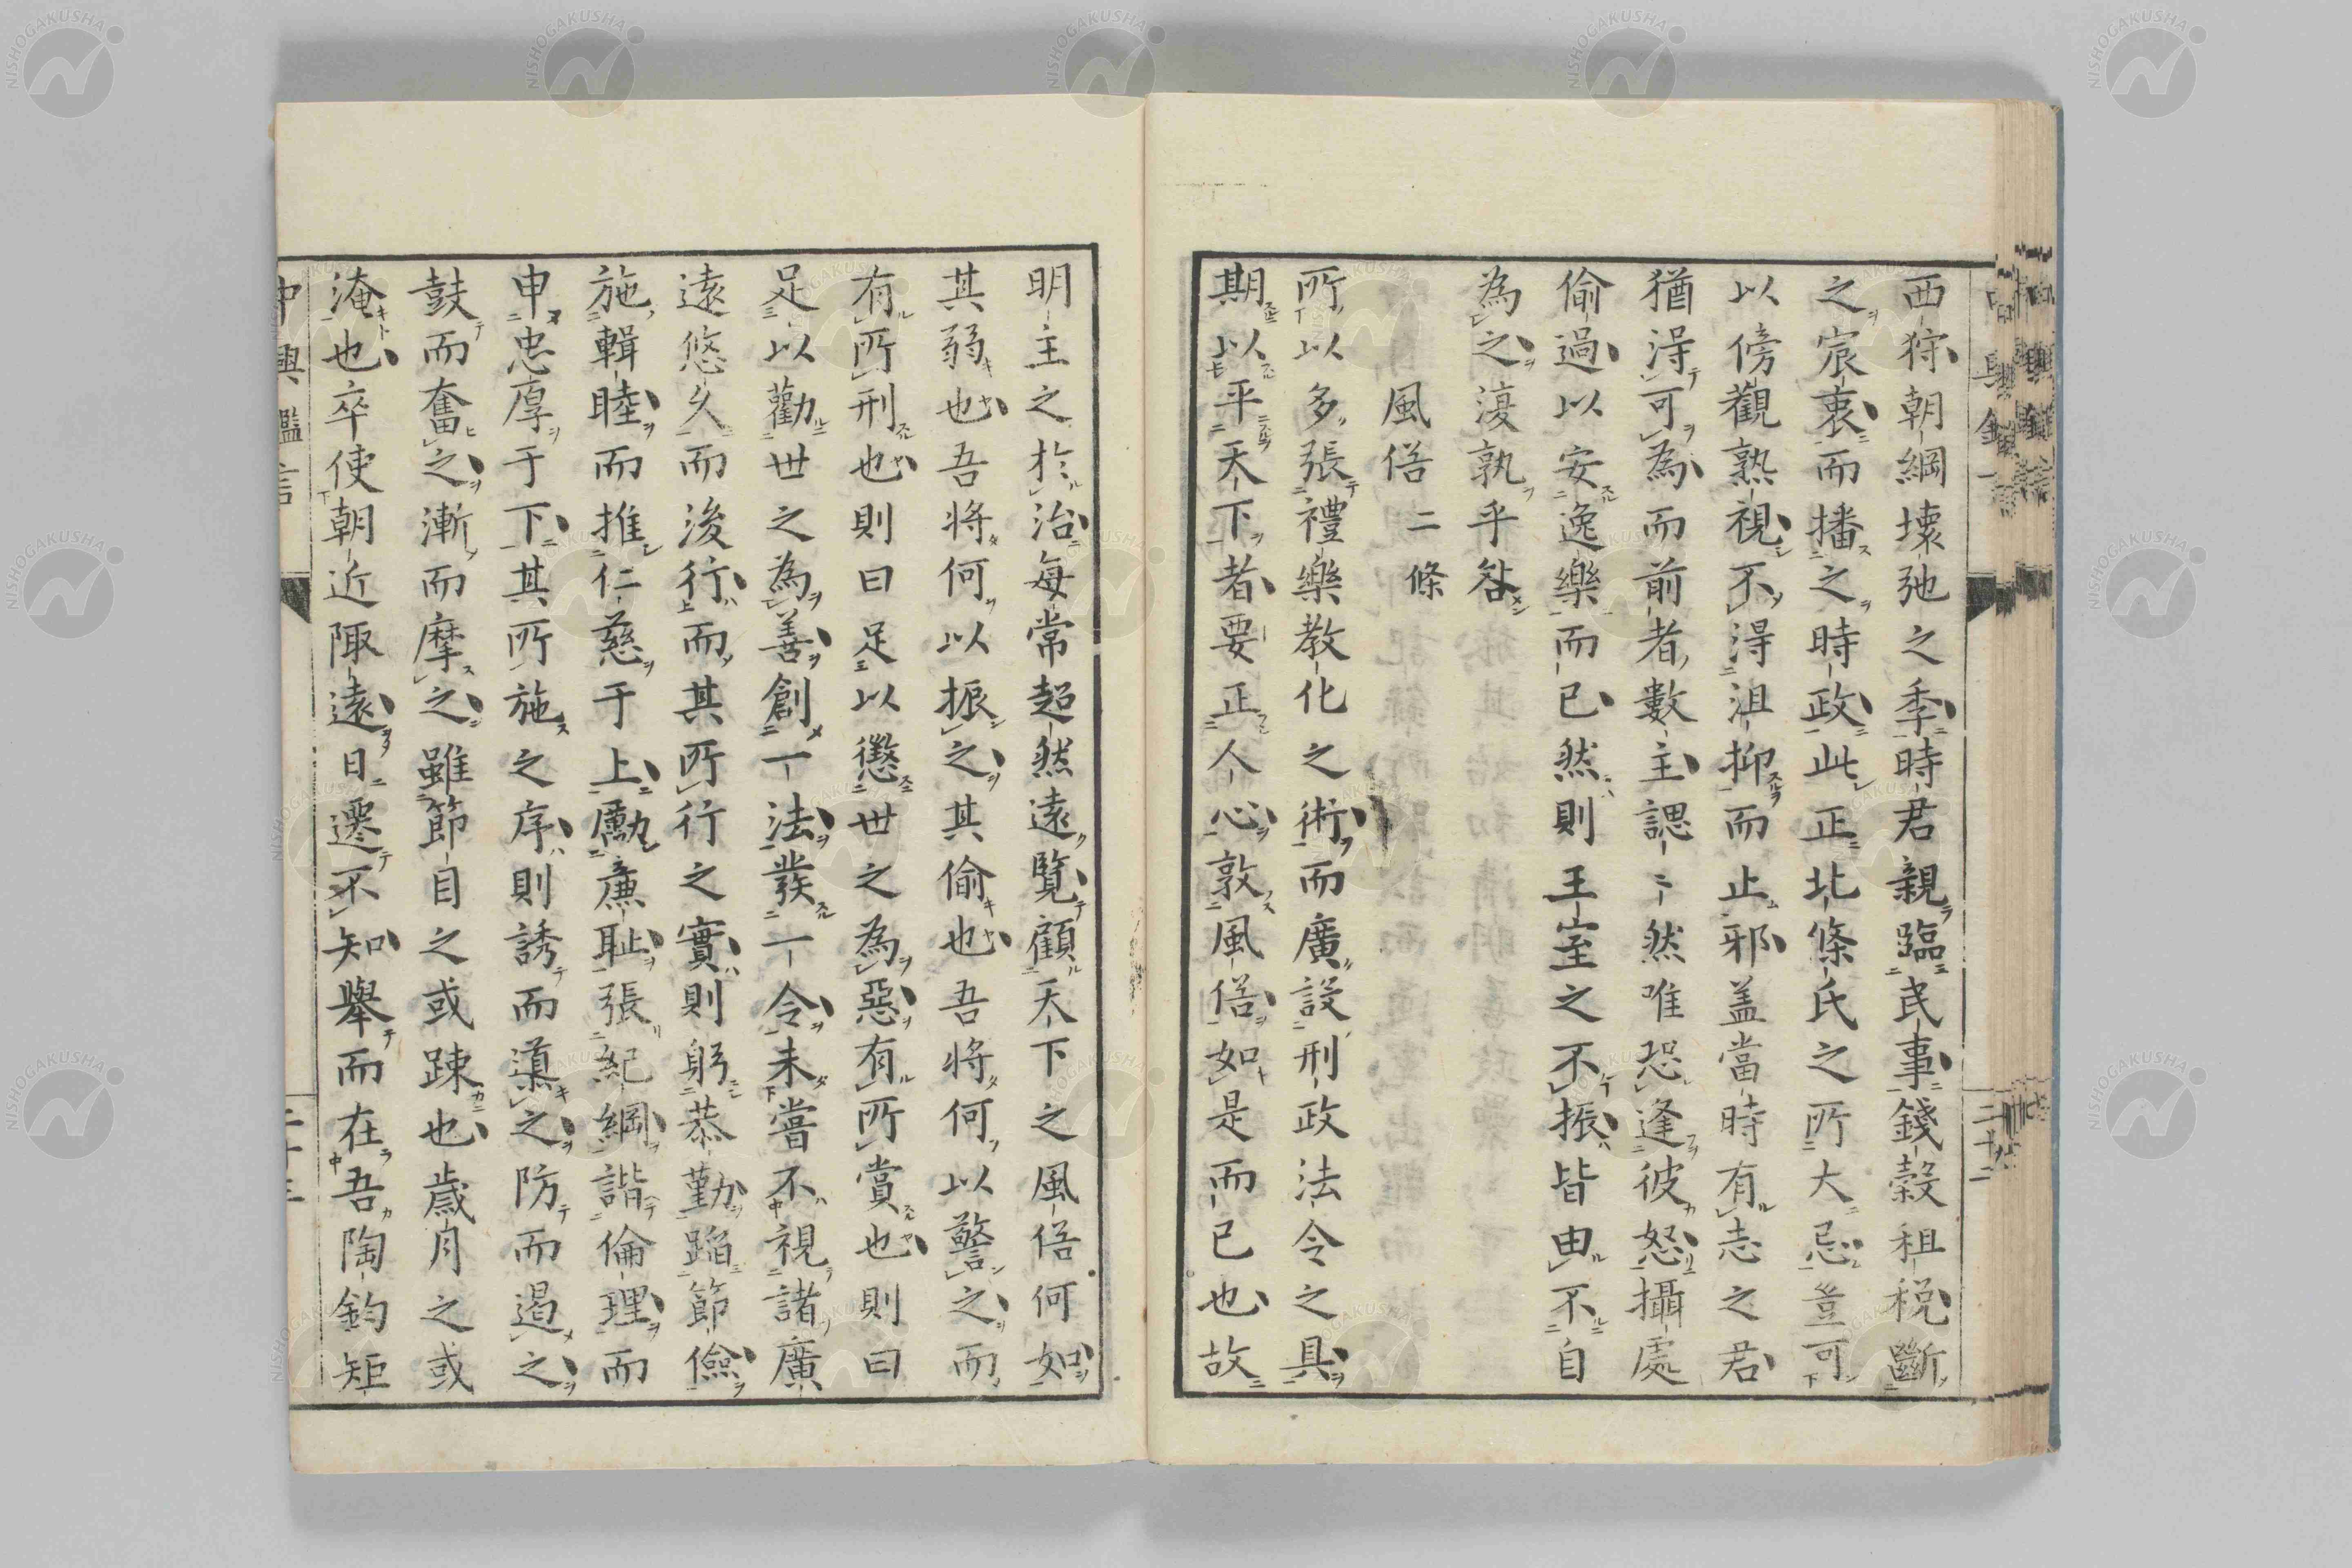 西狩朝綱壞弛之季時君親臨民事錢穀租税斷
之宸衷而播之時政此正北條氏之所大忌豈可
以傍觀熟視不得沮抑而止邪盖當時有志之君
猶得可為而前者數主諰〻然唯恐逢彼怒攝處
偷過以安逸樂而已然則王室之不振皆由不自
為之復孰乎咎
風俗二條
所以多張禮樂教化之術而廣設刑政法令之具
期以平天下者要正人心敦風俗如是而已也故
明主之於治每常超然遠覽顧天下之風俗何如
其弱也吾將何以振之其偷也吾將何以警之而
有所刑也則曰足以懲世之為惡有所賞也則曰
足以勸世之為善創一法發一令未嘗不視諸廣
遠悠久而後行而其所行之實則躬恭勤蹈節儉
施輯睦而推仁慈于上勵廉恥張紀綱諧倫理而
申忠厚于下其所施之序則誘而導之防而遏之
鼓而奮之漸而摩之雖節目之或踈也歲月之或
淹也卒使朝近陬遠日遷不知舉而在吾陶鈞矩
中興鑑言
二十三
二十二
NISHOGAKUSHA